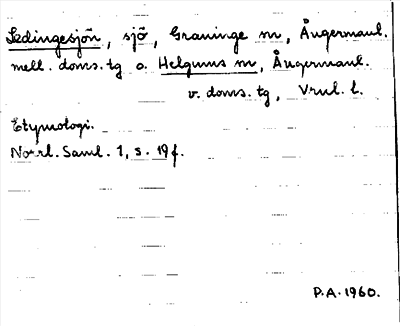 Ledingesjön, sjö, Graninge sn, Ångermanl.
mell. doms. tg o. Helgums sn, Ångermanl.
v. doms. tg, Vrnl. l.
Etymologi.
Norrl. Saml. 1, s. 19 f.
P.A. 1960.